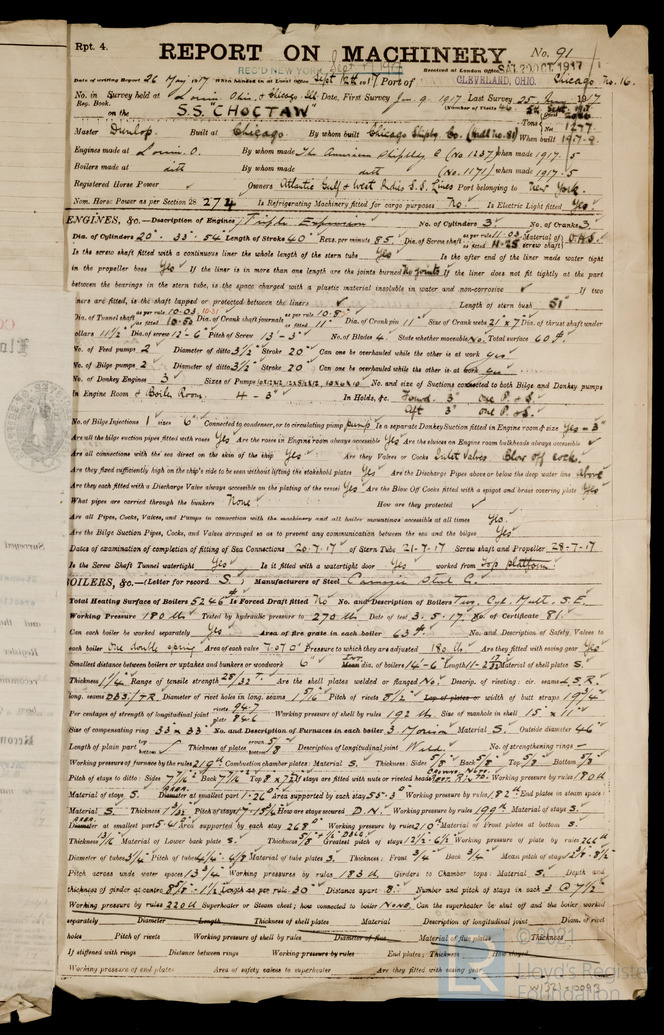 Rpt. 4.
REPORT ON MACHINERY. No. 91
REC'D NEW YORK Sept 17 1917
Received at London Office SAT. 20 OCT 1917
Date of writing Report 26 May 1917 When handed in at Local Office Sept 12th 1917 Port of CLEVELAND, OHIO. Chicago No. 16.
No. in Survey held at Lorain, Ohio, & Chicago, Ill. Date, First Survey Jan. 9. 1917 Last Survey 25. 1917
Reg. Book. (Number of Visits
on the S.S. "CHOCTAW" Tons
Master Dunlop. Built at Chicago By whom built Chicago Shipbg. Co. When built 1917-9
Engines made at Lorain, O. By whom made The American Shipbldg Co (No 1237) when made 1917-5
Boilers made at ditto By whom made ditto (No 1171) when made 1917-5
Registered Horse Power Owners Atlantic Gulf & West Indies S.S. Lines Port belonging to New York.
Nom. Horse Power as per Section 28 274 Is Refrigerating Machinery fitted for cargo purposes No. Is Electric Light fitted Yes
ENGINES, &c.—Description of Engines Triple Expansion No. of Cylinders 3 No. of Cranks 3
Dia. of Cylinders 20" 33" 54" Length of Stroke 40" Revs. per minute 85 Dia. of Screw shaft as per rule 11.03 as fitted 11.25 Material of screw shaft O.H.S.
Is the screw shaft fitted with a continuous liner the whole length of the stern tube Yes Is the after end of the liner made water tight
in the propeller boss Yes If the liner is in more than one length are the joints burned No joints If the liner does not fit tightly at the part
between the bearings in the stern tube, is the space charged with a plastic material insoluble in water and non-corrosive If two
liners are fitted, is the shaft lapped or protected between the liners Length of stern bush 51"
Dia. of Tunnel shaft as per rule 10.03 10.31 as fitted 10.50 Dia. of Crank shaft journals as per rule as fitted 11" Dia. of Crank pin 11" Size of Crank webs 21" x 7" Dia. of thrust shaft under
collars 11 1/2" Dia. of screw 12'-6" Pitch of Screw 13'-3" No. of Blades 4. State whether moveable No. Total surface 60 ft.
No. of Feed pumps 2 Diameter of ditto 3 1/2" Stroke 20" Can one be overhauled while the other is at work yes
No. of Bilge pumps 2 Diameter of ditto 3 1/2" Stroke 20" Can one be overhauled while the other is at work yes
No. of Donkey Engines 3 Sizes of Pumps No. and size of Suctions connected to both Bilge and Donkey pumps
In Engine Room & Boiler Room. 4 - 3" In Holds, &c. Forwd. 3" one P. & S.
Aft 3" one P. & S.
No. of Bilge Injections 1 sizes 6" Connected to condenser, or to circulating pump pump Is a separate Donkey Suction fitted in Engine room & size Yes - 3"
Are all the bilge suction pipes fitted with roses Yes Are the roses in Engine room always accessible Yes Are the sluices on Engine room bulkheads always accessible
Are all connections with the sea direct on the skin of the ship Yes Are they Valves or Cocks Inlet Valves Blow off cock.
Are they fixed sufficiently high on the ship's side to be seen without lifting the stokehold plates Yes Are the Discharge Pipes above or below the deep water line above
Are they each fitted with a Discharge Valve always accessible on the plating of the vessel Yes Are the Blow Off Cocks fitted with a spigot and brass covering plate Yes
What pipes are carried through the bunkers None How are they protected
Are all Pipes, Cocks, Valves, and Pumps in connection with the machinery and all boiler mountings accessible at all times Yes.
Are the Bilge Suction Pipes, Cocks, and Valves arranged so as to prevent any communication between the sea and the bilges Yes
Dates of examination of completion of fitting of Sea Connections 20-7-17 of Stern Tube 21-7-17 Screw shaft and Propeller 28-7-17
Is the Screw Shaft Tunnel watertight Yes Is it fitted with a watertight door Yes worked from top platform
BOILERS, &c.—(Letter for record S.) Manufacturers of Steel Carnegie Steel Co.
Total Heating Surface of Boilers 5246 Is Forced Draft fitted No No. and Description of Boilers Two, Cyl. Mult. S.E.
Working Pressure 180 lb Tested by hydraulic pressure to 270 lb Date of test 3-5-17 No. of Certificate 81.
Can each boiler be worked separately Yes Area of fire grate in each boiler 63 No. and Description of Safety Valves to
each boiler One double spring Area of each valve 7.07 Pressure to which they are adjusted 180 lb Are they fitted with easing gear Yes
Smallest distance between boilers or uptakes and bunkers or woodwork 6" Mean dia. of boilers 14'-6" Length Material of shell plates S.
Thickness 1 1/4 Range of tensile strength 28/32 T. Are the shell plates welded or flanged No. Descrip. of riveting: cir. seams L.S.R.
long. seams Diameter of rivet holes in long. seams 1 5/16 Pitch of rivets 8 1/2 Lap of plates or width of butt straps 19 3/4"
Per centages of strength of longitudinal joint rivets 94.7 plate 84.6 Working pressure of shell by rules 192 lb Size of manhole in shell 15" x 11"
Size of compensating ring 33" x 33" No. and Description of Furnaces in each boiler 3 Morison Material S. Outside diameter 46"
Length of plain part Thickness of plates 5/8 Description of longitudinal joint Weld. No. of strengthening rings
Working pressure of furnace by the rules 219 Combustion chamber plates: Material S. Thickness: Sides 5/8 Back 5/8 Top 5/8 Bottom
Pitch of stays to ditto: Sides Back Top If stays are fitted with nuts or riveted heads Working pressure by rules 180 lb
Material of stays S. Diameter at smallest part 1.26 Area supported by each stay Working pressure by rules 182 End plates in steam space:
Material S. Thickness Pitch of stays How are stays secured D.N. Working pressure by rules 199 Material of stays S.
Diameter at smallest part Area supported by each stay 268 Working pressure by rules 210 Material of Front plates at bottom S.
Thickness 13/16 Material of Lower back plate S. Thickness Greatest pitch of stays Working pressure of plate by rules 266
Diameter of tubes 3 1/4 Pitch of tubes Material of tube plates S. Thickness: Front 3/4 Back 3/4 Mean pitch of stays
Pitch across wide water spaces 13 3/4" Working pressures by rules 183 lb Girders to Chamber tops: Material S. Depth and
thickness of girder at centre Length as per rule 30 Distance apart 8" Number and pitch of stays in each 3 @ 7 1/2
Working pressure by rules 220 lb Superheater or Steam chest; how connected to boiler None. Can the superheater be shut off and the boiler worked
separately Diameter Length Thickness of shell plates Material Description of longitudinal joint Diam. of rivet
holes Pitch of rivets Working pressure of shell by rules Diameter of flue Material of flue plates Thickness
If stiffened with rings Distance between rings Working pressure by rules End plates; Thickness How stayed
Working pressure of end plates Area of safety valves to superheater Are they fitted with easing gear
© 2021
Lloyd's Register
Foundation
W1521-0093
Surveyed